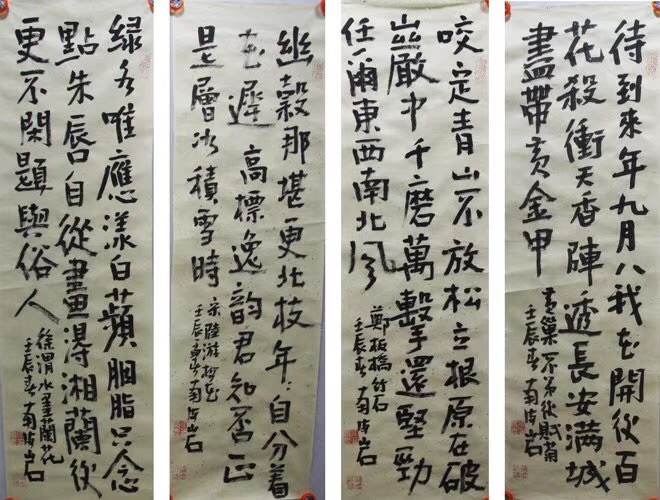 待到來年九月八我花開後百
花殺衝天香陣透長安满城
盡帶黄金甲
黄巢不第後賦菊
壬辰春
咬定青山不放松立根原在破
巖中千磨萬擊還堅勁
任爾東西南北風
鄭板橋竹石
壬辰春
幽穀那堪更北枝年年自分着
花遲高標逸韵君知否正
是層冰積雪時
宋陸游梅花
壬辰春
緑水唯應漾白蘋胭脂只念
點朱唇自從畫得湘蘭後
更不閑題與俗人
徐渭水墨蘭花
壬辰春